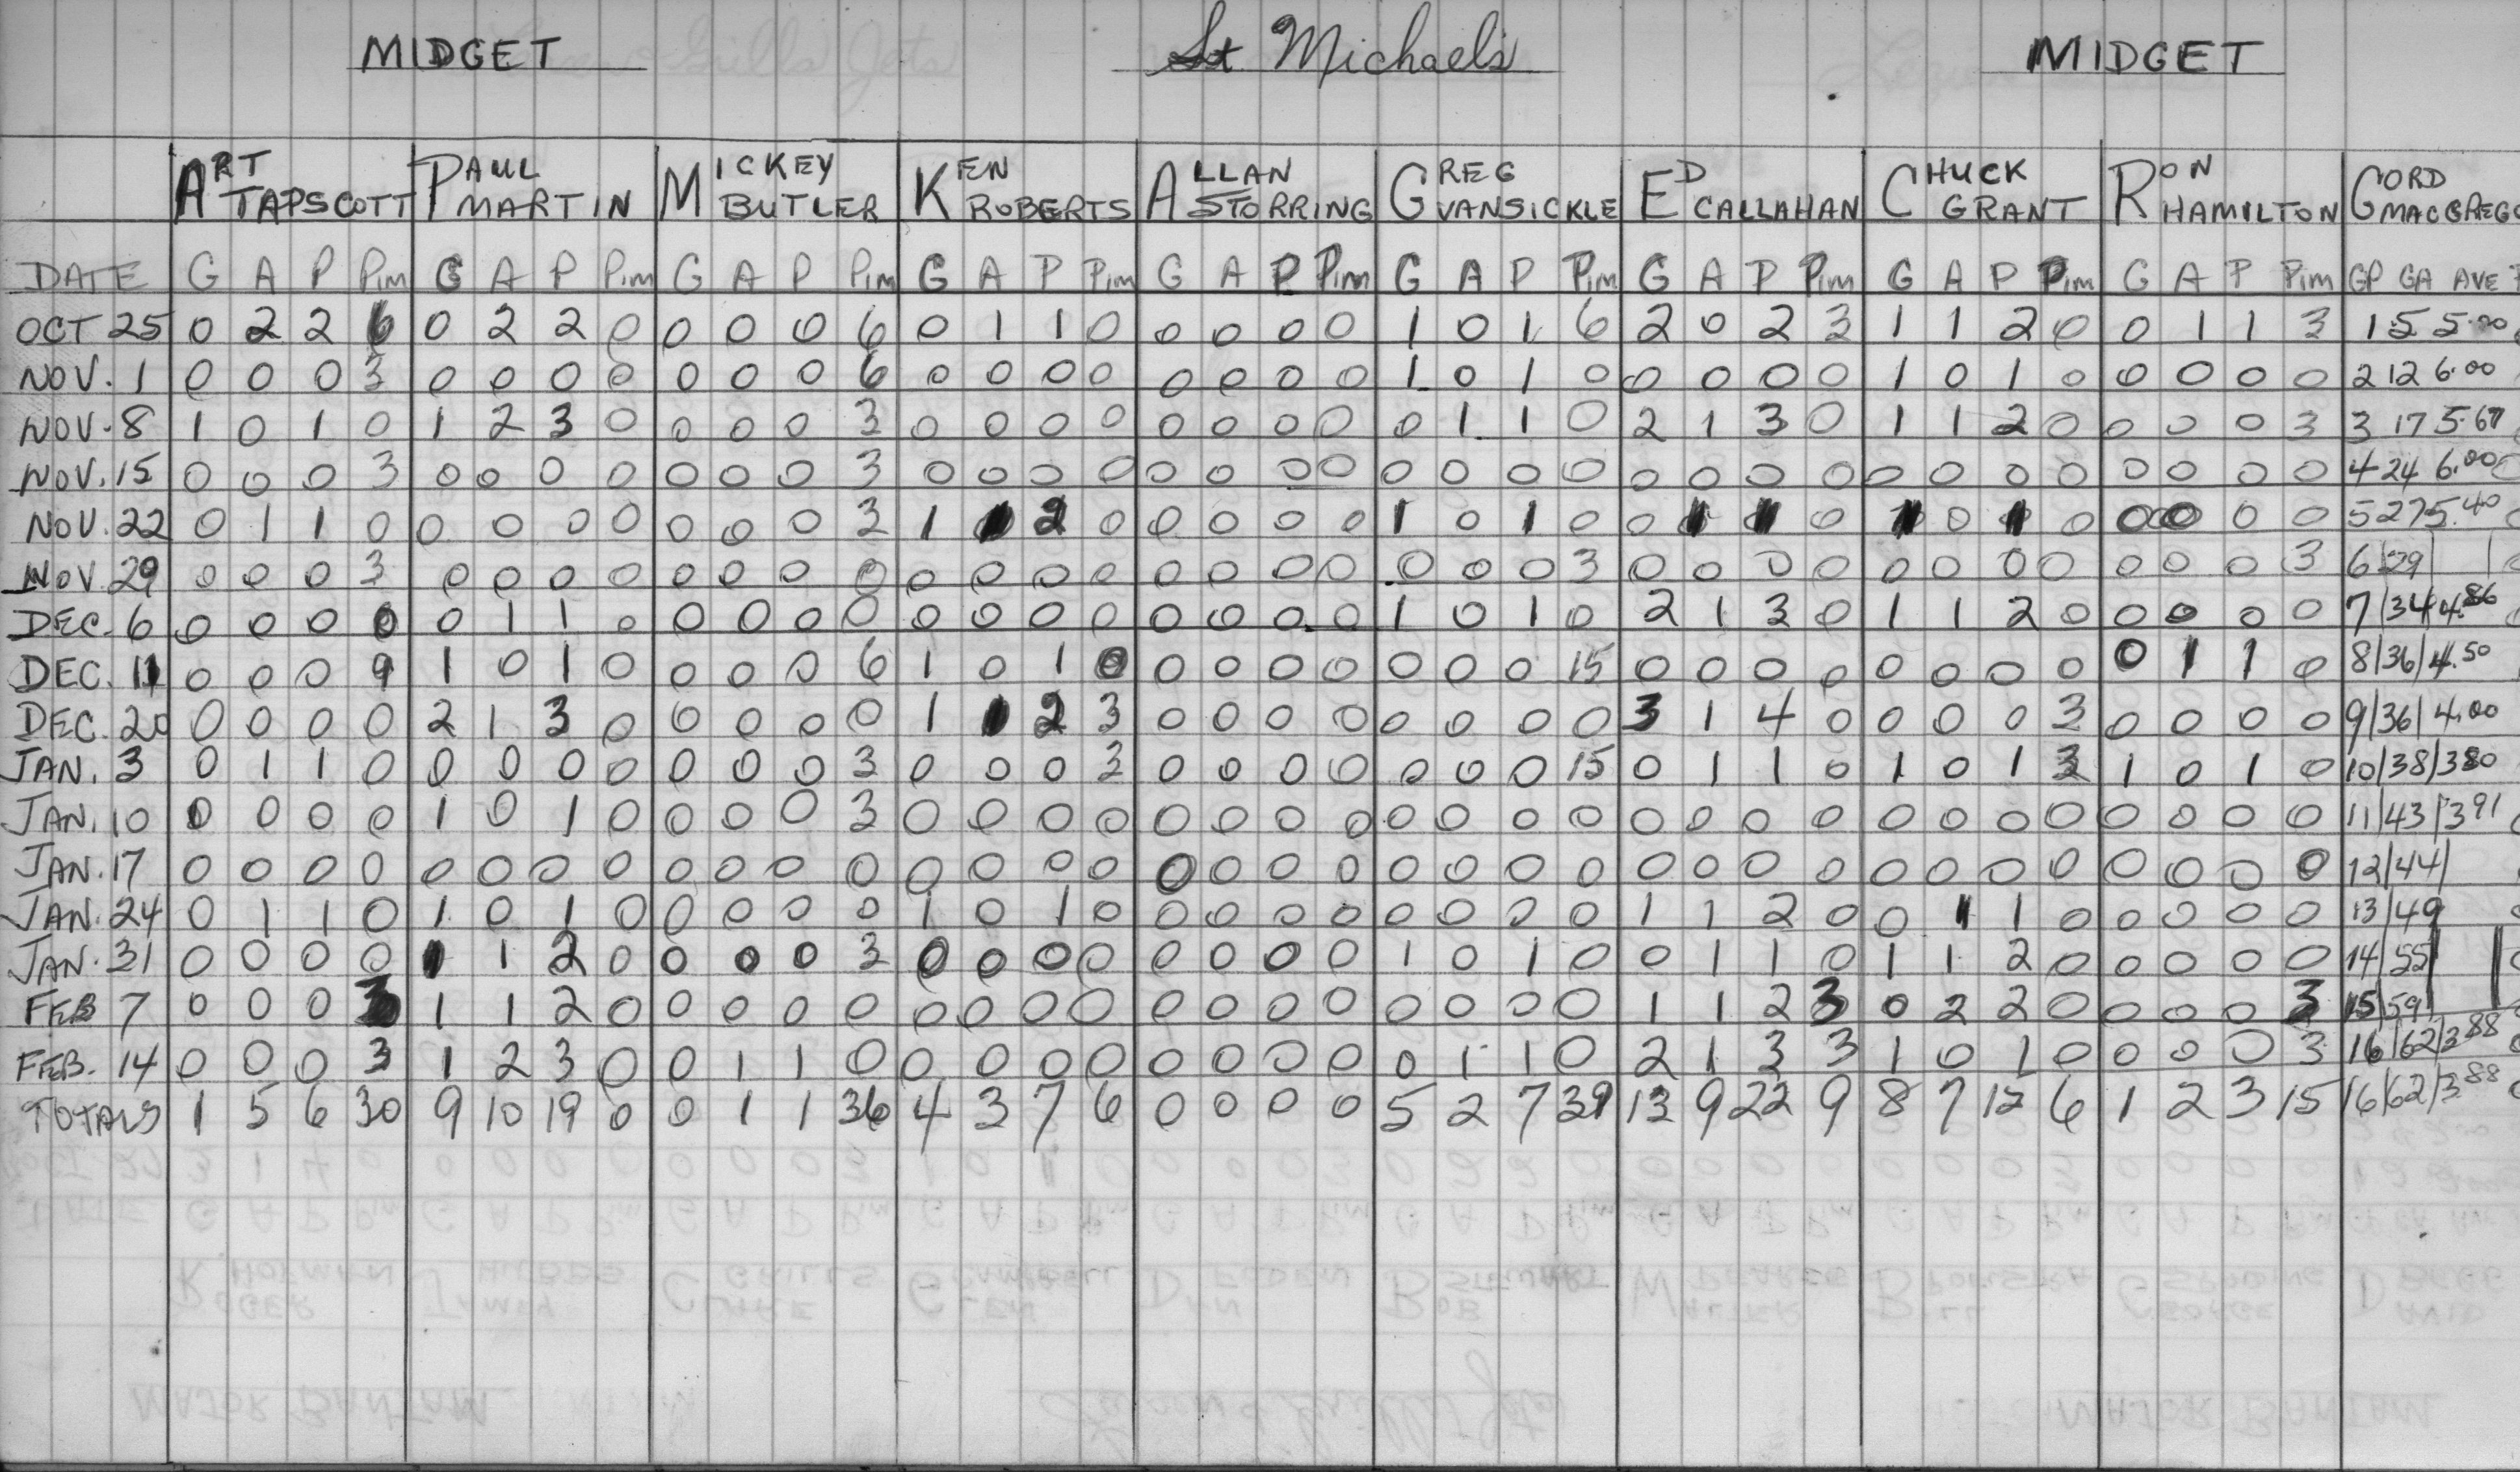 MIDGET St Michael's MIDGET
ART TAPSCOTT PAUL MARTIN MICKEY BUTLER KEN ROBERTS ALLAN STORRING GREG VANSICKLE ED CALLAHAN CHUCK GRANT RON HAMILTON GORD MACGREGO
DATE G A P Pim G A P Pim G A P Pim G A P Pim G A P Pim G A P Pim G A P Pim G A P Pim G A P Pim GP GA AVE P
OCT 25 0 2 2 6 0 2 2 0 0 0 0 6 0 1 1 0 0 0 0 0 1 0 1 6 2 0 2 3 1 1 2 0 0 1 1 3 1 5 5.00
NOV. 1 0 0 0 3 0 0 0 0 0 0 0 6 0 0 0 0 0 0 0 0 1 0 1 0 0 0 0 0 1 0 1 0 0 0 0 0 2 12 6.00
NOV. 8 1 0 1 0 1 2 3 0 0 0 0 3 0 0 0 0 0 0 0 0 0 1 1 0 2 1 3 0 1 1 2 0 0 0 0 3 3 17 5.67
NOV. 15 0 0 0 3 0 0 0 0 0 0 0 3 0 0 0 0 0 0 0 0 0 0 0 0 0 0 0 0 0 0 0 0 0 0 0 0 4 24 6.00
NOV. 22 0 1 1 0 0 0 0 0 0 0 0 3 1 1 2 0 0 0 0 0 1 0 1 0 0 1 1 0 1 0 1 0 0 0 0 0 5 27 5.40
NOV. 29 0 0 0 3 0 0 0 0 0 0 0 0 0 0 0 0 0 0 0 0 0 0 0 3 0 0 0 0 0 0 0 0 0 0 0 3 6 29
DEC. 6 0 0 0 0 0 1 1 0 0 0 0 0 0 0 0 0 0 0 0 0 1 0 1 0 2 1 3 0 1 1 2 0 0 0 0 0 7 34 4.86
DEC. 11 0 0 0 9 1 0 1 0 0 0 0 6 1 0 1 0 0 0 0 0 0 0 0 15 0 0 0 0 0 0 0 0 0 1 1 0 8 36 4.50
DEC. 20 0 0 0 0 2 1 3 0 0 0 0 0 1 1 2 3 0 0 0 0 0 0 0 0 3 1 4 0 0 0 0 3 0 0 0 0 9 36 4.00
JAN. 3 0 1 1 0 0 0 0 0 0 0 0 3 0 0 0 3 0 0 0 0 0 0 0 15 0 1 1 0 1 0 1 3 1 0 1 0 10 38 3 80
JAN. 10 0 0 0 0 1 0 1 0 0 0 0 3 0 0 0 0 0 0 0 0 0 0 0 0 0 0 0 0 0 0 0 0 0 0 0 0 11 43 3 91
JAN. 17 0 0 0 0 0 0 0 0 0 0 0 0 0 0 0 0 0 0 0 0 0 0 0 0 0 0 0 0 0 0 0 0 0 0 0 0 12 44
JAN. 24 0 1 1 0 1 0 1 0 0 0 0 0 1 0 1 0 0 0 0 0 0 0 0 0 1 1 2 0 0 1 1 0 0 0 0 0 13 49
JAN. 31 0 0 0 0 1 1 2 0 0 0 0 3 0 0 0 0 0 0 0 0 1 0 1 0 0 1 1 0 1 1 2 0 0 0 0 0 14 55
FEB 7 0 0 0 3 1 1 2 0 0 0 0 0 0 0 0 0 0 0 0 0 0 0 0 0 1 1 2 3 0 2 2 0 0 0 0 3 15 59
FEB. 14 0 0 0 3 1 2 3 0 0 1 1 0 0 0 0 0 0 0 0 0 0 1 1 0 2 1 3 3 1 0 1 0 0 0 0 3 16 62 3 88
TOTALS 1 5 6 30 9 10 19 0 0 1 1 36 4 3 7 6 0 0 0 0 5 2 7 39 13 9 22 9 8 7 12 6 1 2 3 15 16 62 3 88